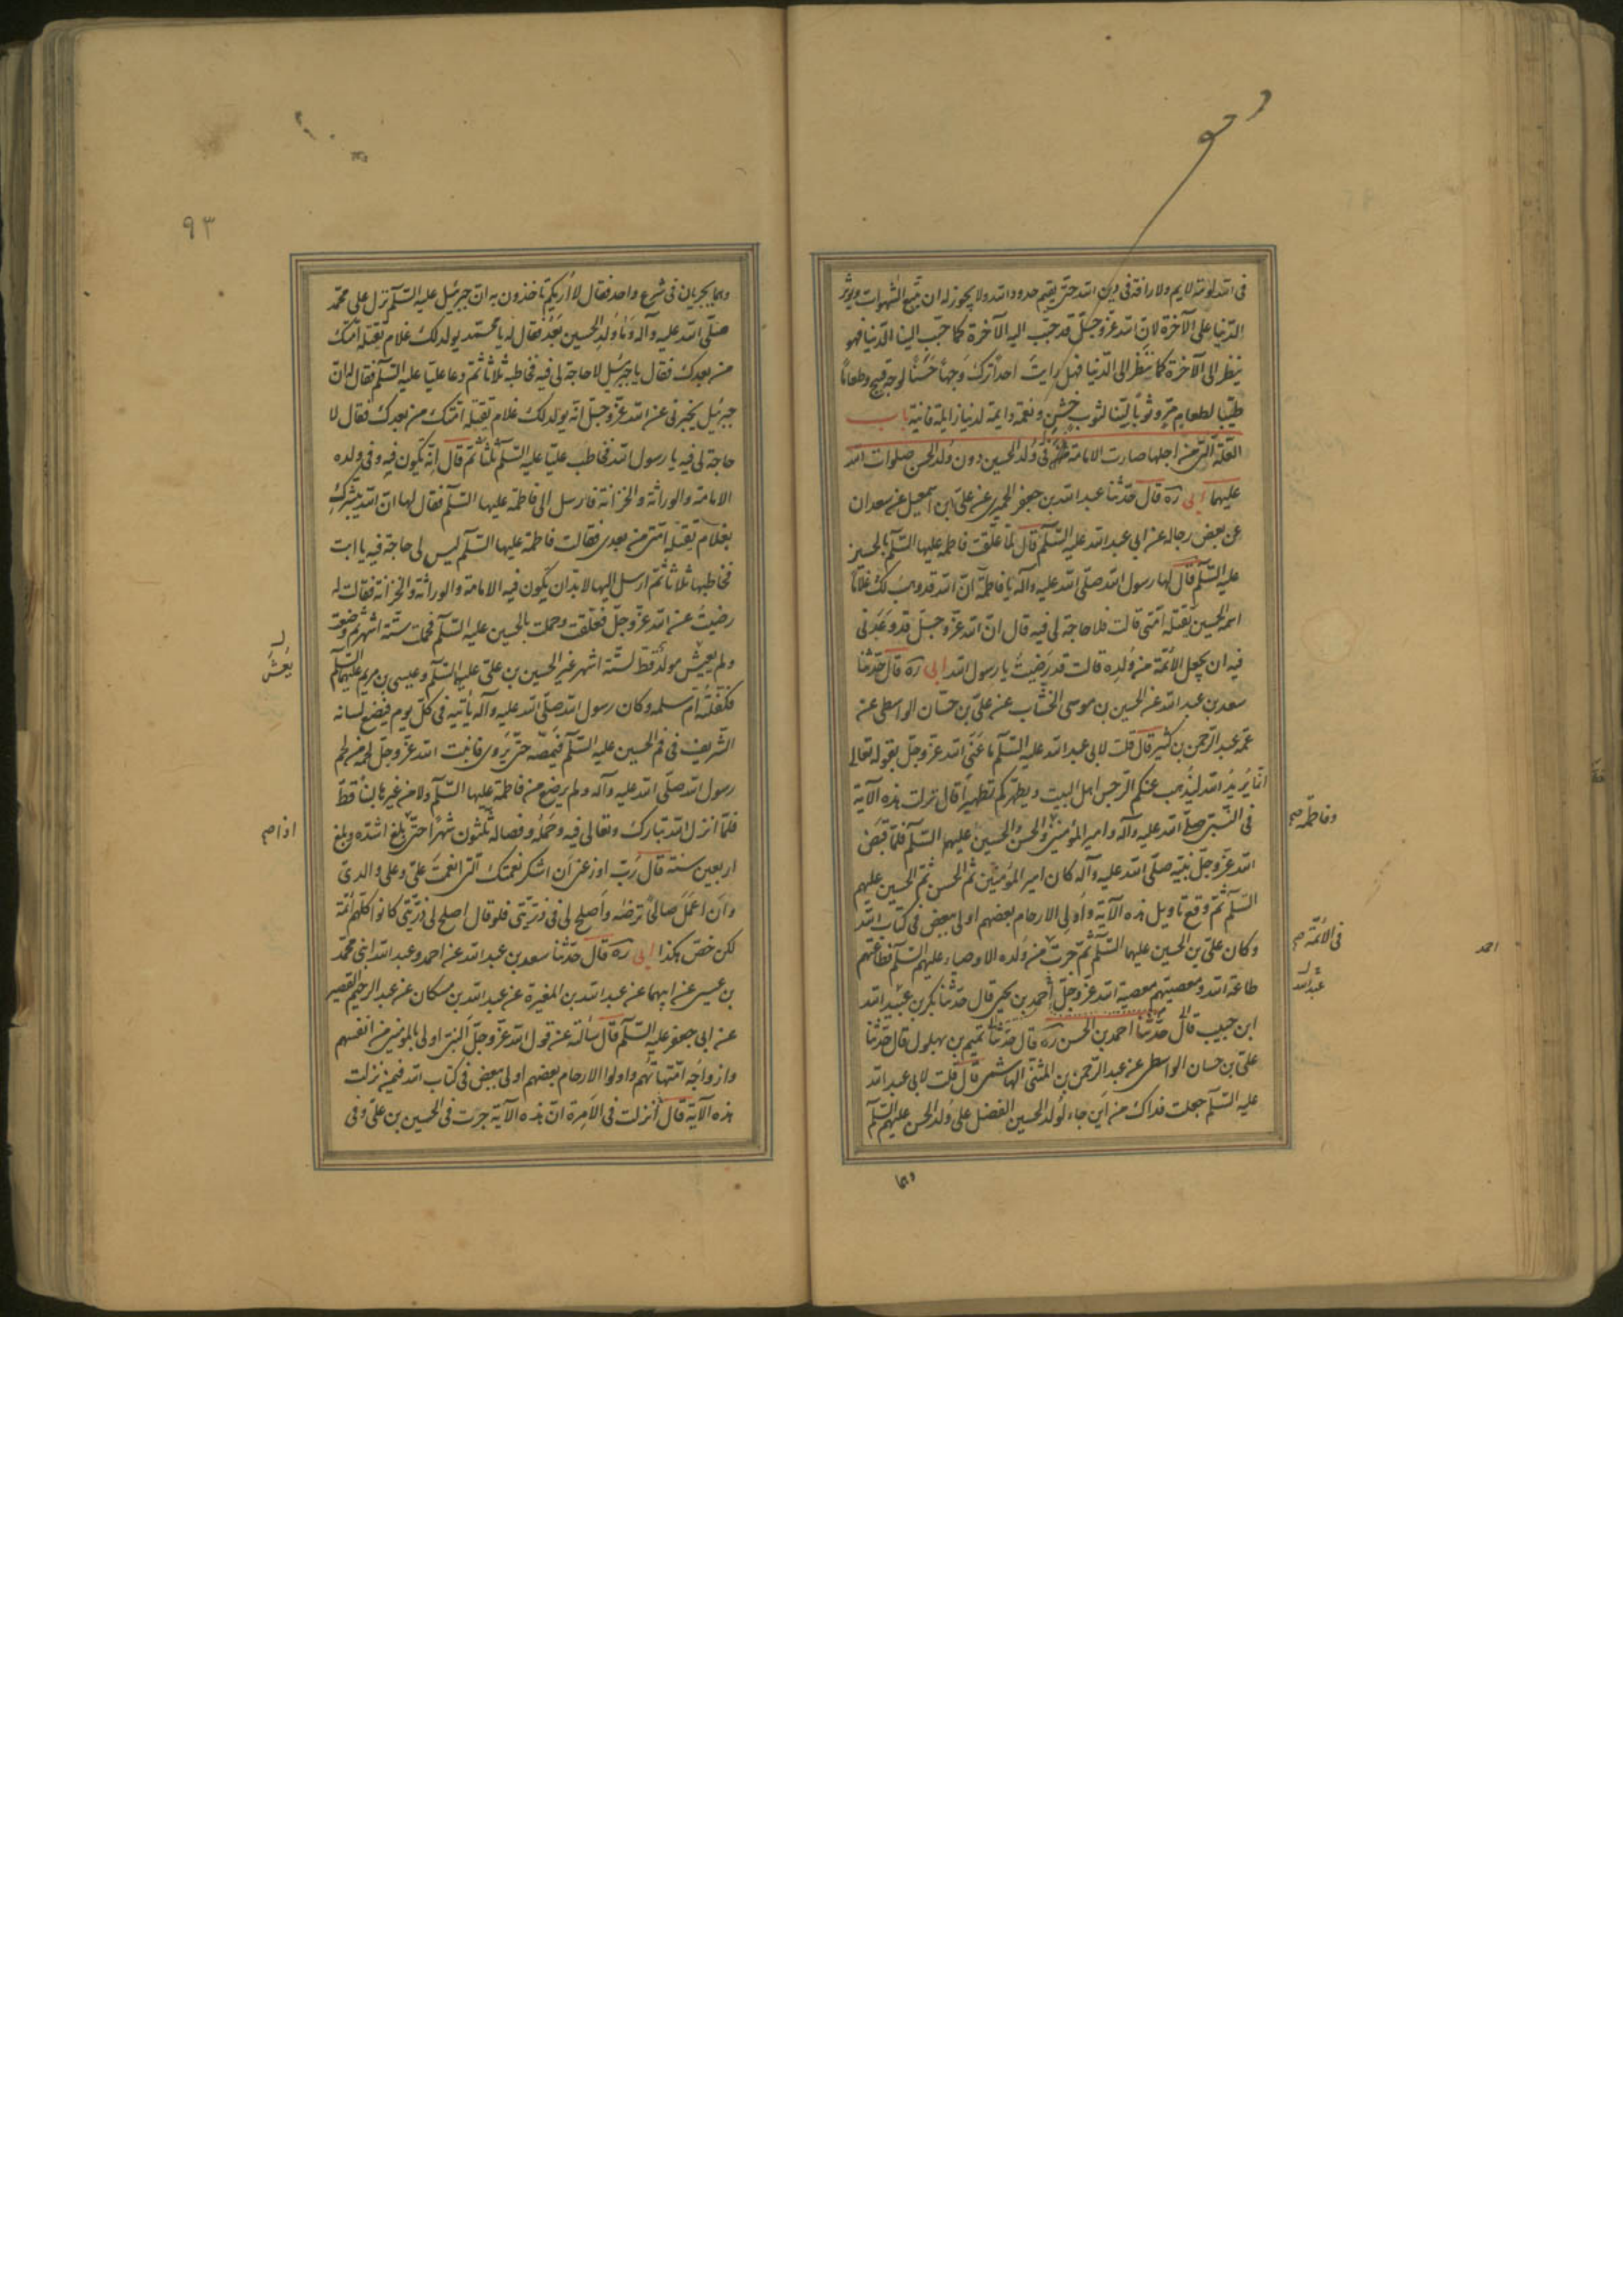 فى الله لومة لايم ولا رافة فى دين الله حتى يقيم حدود الله ولا يجوز له ان يتبع الشهوات ويؤثر
الدّنيا على الآخرة لانّ الله عزّ وجلّ قد حبّب اليه الآخرة كما حبّب الينا الدّنيا فهو
ينظر الى الآخرة كما ننظر الى الدّنيا فهل رايتَ احداً ترك وجهاً حَسَناً لوجهٍ قبيح وطعاماً
طيّباً لطعامٍ مرّ وثوباً ليّناً لثوب خشنٍ ونعمة دايمة لدنيا زايلة فانية باب
العلّة الّتى من اجلها صارت الامامة فى وُلد الحسين دون وُلد الحسن صلوات الله
عليهما ابى ره قال حدّثنا عبد الله بن جعفر الحميرى عن علىّ بن اسمعيل عن سعدان
عن بعض رجاله عن ابى عبد الله عليه السّلم قال لمّا علقت فاطمة عليها السّلم بالحسين
عليه السّلم قال لها رسول الله صلّى الله عليه وآله يا فاطمة انّ الله قد وهب لك غلاماً
اسمه الحسين تقتله امّتى قالت فلا حاجة لى فيه قال انّ الله عزّ وجلّ قد وعَدَنى
فيه ان يجعل الأئمّة من وُلدِه قالت قد رَضِيتُ يا رسول الله ابى ره قال حدّثنا
سعد بن عبد الله عن الحسين بن موسى الخشّاب عن علىّ بن حسّان الواسطى عن
عمّه عبد الرّحمن بن كثير قال قلت لابى عبد الله عليه السّلم ما عَنَى الله عزّ وجلّ بقوله تعالى
انّما يُريدُ الله ليُذهِب عنكم الرّجس اهل البيت ويطهّركم تطهيراً قال نزلت هذه الآية
فى النّبىّ صلّى الله عليه وآله وامير المؤمنين والحسن والحسين عليهم السّلم فلمّا قبَض
وفاطمة صح
الله عزّ وجلّ نبيّه صلّى الله عليه وآله كان امير المؤمنين ثمّ الحسن ثمّ الحسين عليهم
السّلم ثمّ وقع تاويل هذه الآية واولى الارحام بعضهم اولى ببعض فى كتاب الله
وكان علىّ بن الحسين عليهما السّلم ثمّ جرت من وُلده الاوصياء عليهم السّلم فطاعتهم
فى الأئمّة صح
احمد
طاعة الله ومعصيتهم معصية الله عزّ وجلّ احمد بن يحيى قال حدّثنا بكر بن عبيد الله
عبد الله
ابن حبيب قال حدّثنا احمد بن الحسن ره قال حدّثنا تميم بن بهلول قال حدّثنا
علىّ بن حسان الواسطى عن عبد الرّحمن بن المثنّى الهاشمى قال قلت لابى عبد الله
عليه السّلم جعلت فداك من اَين جاء لُولد الحسين الفضل على وُلد الحسن عليهم السّلم
وهما
٩٣
وهما يجريان فى شرع واحد فقال لا اُريكم تاخذون به انّ جبرئيل عليه السّلم نزل على محمّد
صلّى الله عليه وآله وما وُلِد الحسين بَعدُ فقال له يا محمّد يولد لك غلام تقتله امّتك
من بعدك فقال يا جبرئيل لا حاجة لى فيه فخاطبه ثلاثا ثمّ دعا عليّا عليه السّلم فقال له انّ
جبرئيل يخبرنى عن الله عزّ وجلّ انّه يولد لك غلام تقتله امّتك من بعدك فقال لا
حاجة لى فيه يا رسول الله فخاطب عليّا عليه السّلم ثلثا ثمّ قال انّه يكون فيه وفى ولده
الامامة والوراثة والخزانة فارسل الى فاطمة عليها السّلم فقال لها انّ الله يبشّركِ
بغلام تقتله امّتى من بعدى فقالت فاطمة عليها السّلم ليس لى حاجة فيه يا ابت
فخاطبها ثلاثا ثمّ ارسل اليها لابدّ ان يكون فيه الامامة والوراثة والخزانة فقالت له
رضيتُ عن الله عزّ وجلّ فعلقت وحملت بالحسين عليه السّلم فحملت ستّة اشهر ثمّ وضعته
ولم يعيش مولد قطّ لستّة اشهر غير الحسين بن علىّ عليهما السّلم وعيسى بن مريم عليهما السّلم
يَعِش
فكفلته اُمّ سلمه وكان رسول الله صلّى الله عليه وآله يأتيه فى كلّ يوم فيضع لسانه
الشّريف فى فم الحسين عليه السّلم فيَمصّه حتّى يَروى فانبت الله عزّ وجلّ لحمه من لحم
رسول الله صلّى الله عليه وآله ولم يرضع من فاطمة عليها السّلم ولا من غيرها لبناً قطّ
فلمّا انزل الله تبارك وتعالى فيه وحَملُه وفصاله ثلثون شهراً حتّى بلغ اشدّه وبلغ
اذا صح
اربعين سنة قال رَبّ اوزعنى اَن اشكر نعمتك الّتى انعمتَ علىّ وعلى والدىّ
وان اعمَل صالحاً ترضٰه واَصلح لى فى ذرّيّتى فلو قال اصلح لى ذرّيّتى كانوا كلّهم ائمّة
لكن خصّ هكذا ابى ره قال حدّثنا سعد بن عبد الله عن احمد وعبد الله ابنى محمّد
بن عيسى عن ابيهما عن عبد الله بن المغيرة عن عبد الله بن مسكان عن عبد الرحيم القصير
عن ابى جعفر عليه السّلم قال سألته عن قول الله عزّ وجلّ النّبىّ اولى بالمؤمنين من انفسهم
وازواجُه امّهاتهُم واولوا الارحام بعضهم اولى ببعض فى كتاب الله فيمن نزلت
هذه الآية قال اُنزلت فى الاِمرة انّ هذه الآية جرت فى الحسين بن علىّ وفى